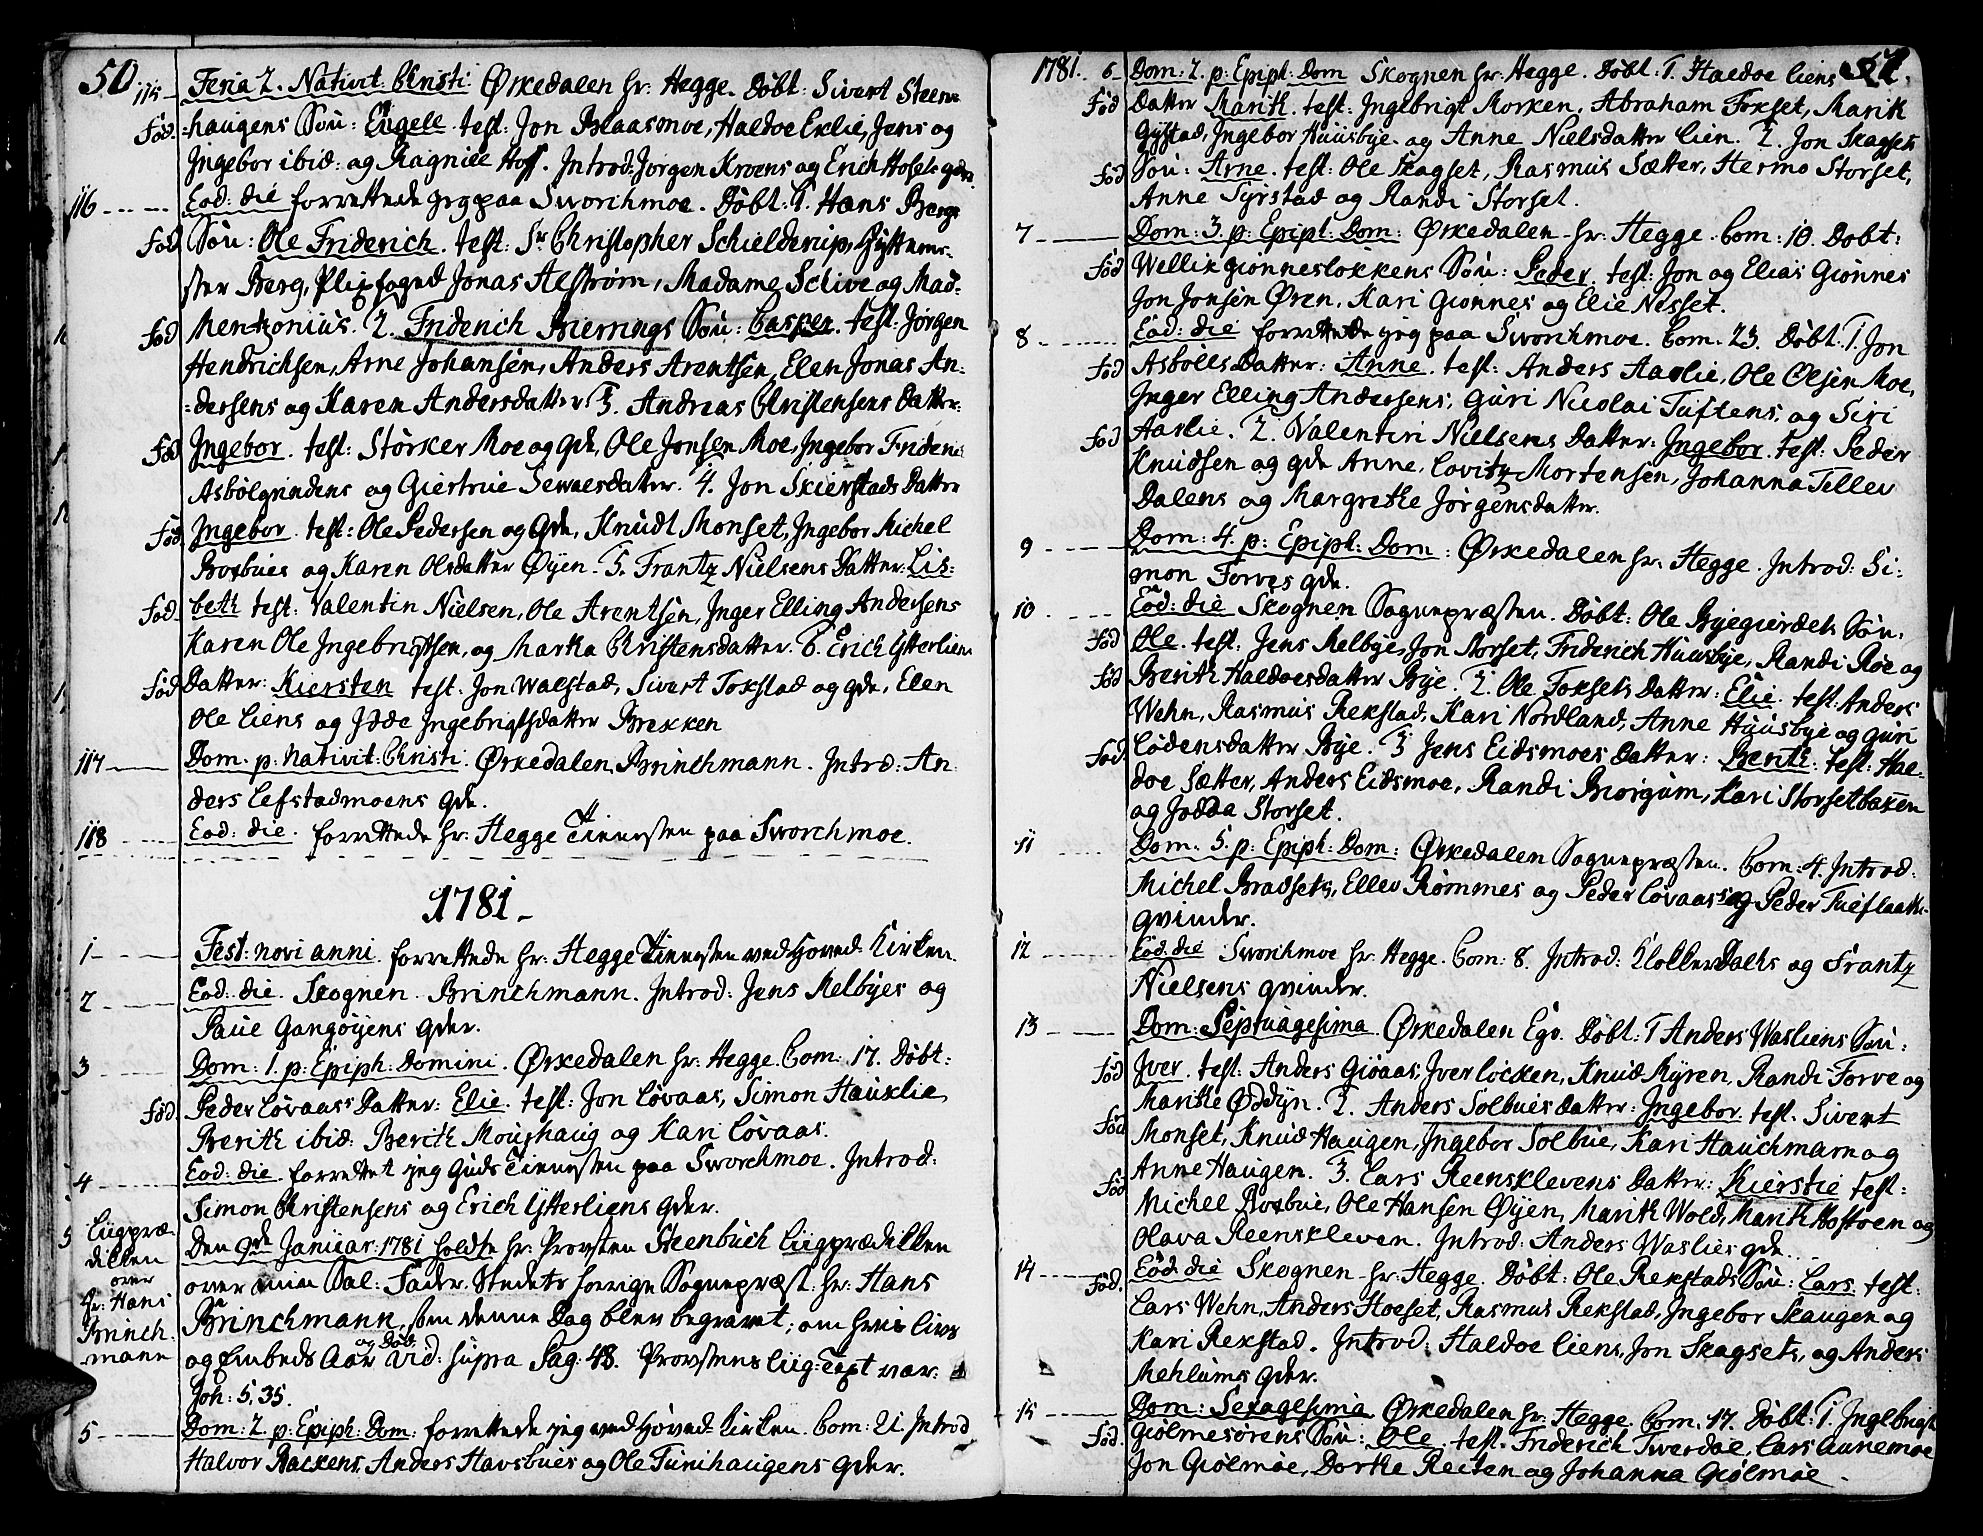 50.
115 - Feria 2. Nativit: Christi Ørkedalen hr: Hegge. Døbt: Sivert Steens
Fød. =haugens Søn: Engell. test: Jon Blaasmoe, Haldoe Eklie, Jens og
Ingebor ibid: og Ragnill Hoff. Introd: Jørgen Kroens og Erich Hofets gder.
116 - - - - Eod: die forrettede jeg paa Sworchmoe. Døbt: 1. Hans Bergs
Fød Søn: Ole Friderich. test: Sr Christopher Schielderup, Hyttem:
ster Berg, Pligfoged Jonas Alstrøm, Madame Schive og Mad:
Fød Mentzonius. 2. Friderich Biernings Søn: Casper. test: Jørgen
Hendrichsen, Arne Johansen, Anders Arentsen, Elen Jonas An-
=dersens og Karen Andersdatter. 3. Andreas Christensens Datter:
Fød Ingebor. test: Størker Moe og Gde, Ole Jonsen Moe, Ingebor Frideric
Asbølgrindens og Giertrue Sewaldsdatter. 4. Jon Skierstads Datter
Fød Ingebor. test: Ole Pedersen og Gde, Knudt Monset, Ingebor Michel
Bosbues og Karen Olsdatter Øyen. 5. Frantz Nielsens Datter: Lis=
Fød. beth test: Valentin Nielsen, Ole Arentsen, Inger Elling Andersens
Karen Ole Ingebrigtsen, og Martha Christensdatter. 6. Erich Ytterliens
Fød Datter: Kiersten test: Jon Walstad, Sivert Tokstad og gde, Elen
Ole Liens og Idde Ingebrigtsdatter Brekken
117 - Dom. p: Nativit: Christi. Ørkedalen, Brinchmann. Introd: An-
ders Lefstadmoens Gde.
118 - - - Eod: die. forrettede hr: Hegge Tienesten paa Sworchmoe.
1781 -
1 - - - Fest: novi anni. forrettede hr: Hegge Tienesten ved Hoved-Kirken.
2 - - - Eod: die. Skognen. Brinchmann. Introd: Jens Melbyes og
Paul Gangøyens Gder.
3 - - - Dom: 1. p: Epiph: Domini. Ørkedalen hr: Hegge. Com: 17. Døbt:
Fød. Peder Løvaas's Datter: Elie. test: Jon Løvaas, Simon Hauklie,
Berith ibid: Berith Moushaug og Kari Løvaas.
4 - - - Eod: die forrettet jeg Guds Tienesten paa Sworchmoe. Introd:
Simon Christensens og Erich Ytterliens Gder.
5 Liigpræ=
dikken
over
Hr: Hans
Brinch-
mann
Den 9de Januar: 1781 holdte hr: Provsten Steenbuch Liigprædikken
over min Sal: Fader Stedets forrige Sognepræst hr: Hans
Brinchmann, som denne Dag blev begravet; om hvis livs
og Embeds Aar og Død vid: supra Pag: 48. Provstens Liig-Text var:
Joh: 5, 35.
5 - - - Dom: 2. p: Epiph: Dom: forrettede jeg ved Hoved-Kirken. Com: 21. Introd
Halvor Backens, Anders Havsbues og Ole Tunihaugens Gder.
1781. 6 - Dom: 2. p: Epiph: Dom Skognen hr: Hegge. Døbt: 1. Haldoe Liens 51.
Fød Datter Marith. test: Ingebrigt Morken, Abraham Foxset, Marith
Gystad, Ingebor Huusbye og Anne Nielsdatter Lien. 2. Jon Skagsets
Fød Søn: Arne. test: Ole Skagset, Rasmus Sætter, Hermo Storset,
Anne Syrstad og Randi Storset.
7 - - - Dom: 3. p: Epiph: Dom: Ørkedalen hr: Hegge. Com: 10. Døbt:
Fød Wellik Giønnesløkkens Søn: Peder. test: Jon og Elias Giønnes
Jon Jonsen Øren, Kari Giønnes og Elie Nesset.
8 - - - Eod: die forrettede jeg paa Sworchmoe. Com: 23. Døbt: 1. Jon
Fød Asbølls Datter: Anne. test: Anders Aaslie, Ole Olsen Moe,
Inger Elling Andersens, Guri Nicolai Tuftens, og Siri
Fød Aaslie. 2. Valentin Nielsens Datter: Ingebor. test: Peder
Knudsen og gde Anne, Lovitz Mortensen, Johanna Tellev
Dalens og Margrethe Jørgensdatter.
9 - - - Dom: 4. p: Epiph: Dom: Ørkedalen hr: Hegge. Introd: Si-
mon Forves gde.
10 - - - Eod: die Skognen Sognepræsten. Døbt: Ole Byegierdets Søn:
Fød Ole. test: Jens Melbye, Jon Storset, Friderich Huusbye, Randi Røe og
Fød Berith Haldoesdatter Bye. 2. Ole Foxsets Datter: Elie. test: Anders
Wehn, Rasmus Rekstad, Kari Nordland, Anne Huusbye og Guri
Fød. Lødensdatter Bye. 3 Jens Eidsmoes Datter: Berith: test: Hal-
doe Sætter, Anders Eidsmoe, Randi Biørgum, Kari Storsetbaken
og Jødda Storset.
11 - - - Dom. 5. p: Epiph: Dom: Ørkedalen Sognepræsten. Com: 4. Introd:
Michel Bradsets, Ellev Rømmes og Peder Løvaas's og Peder Fueflaatts
qvinder.
12 - - - Eod: die Sworchmoe hr: Hegge. Com: 8. Introd: Klotterdaels og Frantz
Nielsens qvinder.
13 - - - Dom: Septuagesima Ørkedalen Ego. Døbt: 1 Anders Wasliens Søn:
Fød Iver. test: Anders Giøaas, Iver Løcken, Knud Myren, Randi Forve og
Marithe Oddyn. 2. Anders Solbues Datter: Ingebor test. Sivert
Fød Monset, Knud Haugen, Ingebor Solbue, Kari Hauchmarn og
Anne Haugen. 3. Lars Reensklevens Datter: Kierstie test:
Fød Michel Bosbue, Ole Hansen Øyen, Marith Wold, Marith Hostoen og
Olava Reenskleven. Introd: Anders Waslies gde.
14 - - - Fød. Eod: die Skognen hr: Hegge. Døbt: Ole Rekstads Søn: Lars. test:
Lars Wehn, Anders Hoeset, Rasmus Rekstad, Ingebor Skaugen og
Kari Rekstad. Introd: Haldoe Liens, Jon Skagsets, og Anders
Mehlums Gder.
15 - - - Dom: Sexagesima Ørkedalen hr: Hegge. Com: 17. Døbt: 1. Ingebrigt
Fød. Giølmesørens Søn: Ole. test. Friderich Twerdae, Lars Aunemoe
Jon Giølmøe, Dorthe Reiten og Johanna Giølmøe.